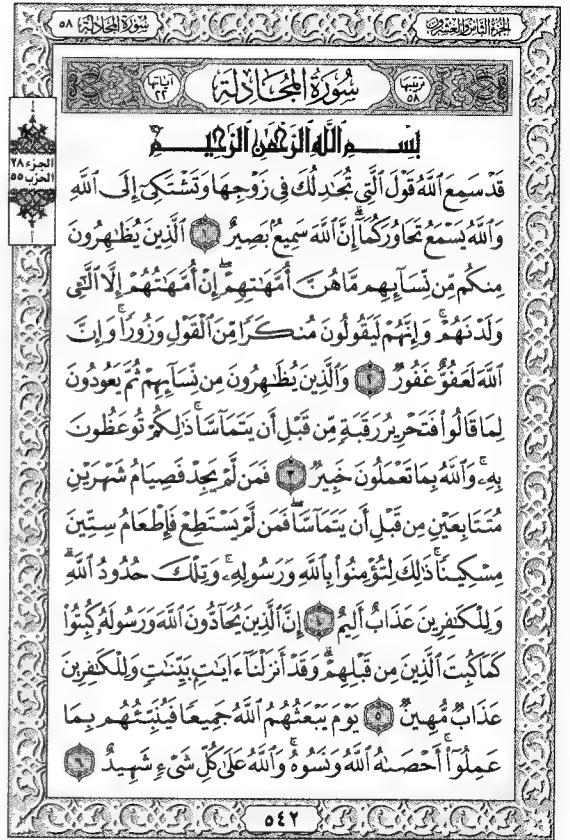 الجزء الثامن والعشرون
سورة المجادلة ٥٨
ترتيبها ٥٨
سُورَةُ المُجَادلَة
آياتها ٢٢
الجزء ٢٨
الحزب ٥٥
بِسْمِ ٱللَّهِ ٱلرَّحْمَٰنِ ٱلرَّحِيمِ
قَدْ سَمِعَ ٱللَّهُ قَوْلَ ٱلَّتِي تُجَٰدِلُكَ فِي زَوْجِهَا وَتَشْتَكِيٓ إِلَى ٱللَّهِ
وَٱللَّهُ يَسْمَعُ تَحَاوُرَكُمَآۚ إِنَّ ٱللَّهَ سَمِيعُۢ بَصِيرٌ ١ ٱلَّذِينَ يُظَٰهِرُونَ
مِنكُم مِّن نِّسَآئِهِم مَّا هُنَّ أُمَّهَٰتِهِمْۖ إِنْ أُمَّهَٰتُهُمْ إِلَّا ٱلَّٰٓـِٔي
وَلَدْنَهُمْۚ وَإِنَّهُمْ لَيَقُولُونَ مُنكَرًا مِّنَ ٱلْقَوْلِ وَزُورًاۚ وَإِنَّ
ٱللَّهَ لَعَفُوٌّ غَفُورٌ ٢ وَٱلَّذِينَ يُظَٰهِرُونَ مِن نِّسَآئِهِمْ ثُمَّ يَعُودُونَ
لِمَا قَالُوا۟ فَتَحْرِيرُ رَقَبَةٍ مِّن قَبْلِ أَن يَتَمَآسَّاۚ ذَٰلِكُمْ تُوعَظُونَ
بِهِۦۚ وَٱللَّهُ بِمَا تَعْمَلُونَ خَبِيرٌ ٣ فَمَن لَّمْ يَجِدْ فَصِيَامُ شَهْرَيْنِ
مُتَتَابِعَيْنِ مِن قَبْلِ أَن يَتَمَآسَّاۖ فَمَن لَّمْ يَسْتَطِعْ فَإِطْعَامُ سِتِّينَ
مِسْكِينًاۚ ذَٰلِكَ لِتُؤْمِنُوا۟ بِٱللَّهِ وَرَسُولِهِۦۚ وَتِلْكَ حُدُودُ ٱللَّهِۗ
وَلِلْكَٰفِرِينَ عَذَابٌ أَلِيمٌ ٤ إِنَّ ٱلَّذِينَ يُحَآدُّونَ ٱللَّهَ وَرَسُولَهُۥ كُبِتُوا۟
كَمَا كُبِتَ ٱلَّذِينَ مِن قَبْلِهِمْۚ وَقَدْ أَنزَلْنَآ ءَايَٰتٍۭ بَيِّنَٰتٍۚ وَلِلْكَٰفِرِينَ
عَذَابٌ مُّهِينٌ ٥ يَوْمَ يَبْعَثُهُمُ ٱللَّهُ جَمِيعًا فَيُنَبِّئُهُم بِمَا
عَمِلُوٓا۟ۚ أَحْصَىٰهُ ٱللَّهُ وَنَسُوهُۚ وَٱللَّهُ عَلَىٰ كُلِّ شَىْءٍ شَهِيدٌ ٦
٥٤٢